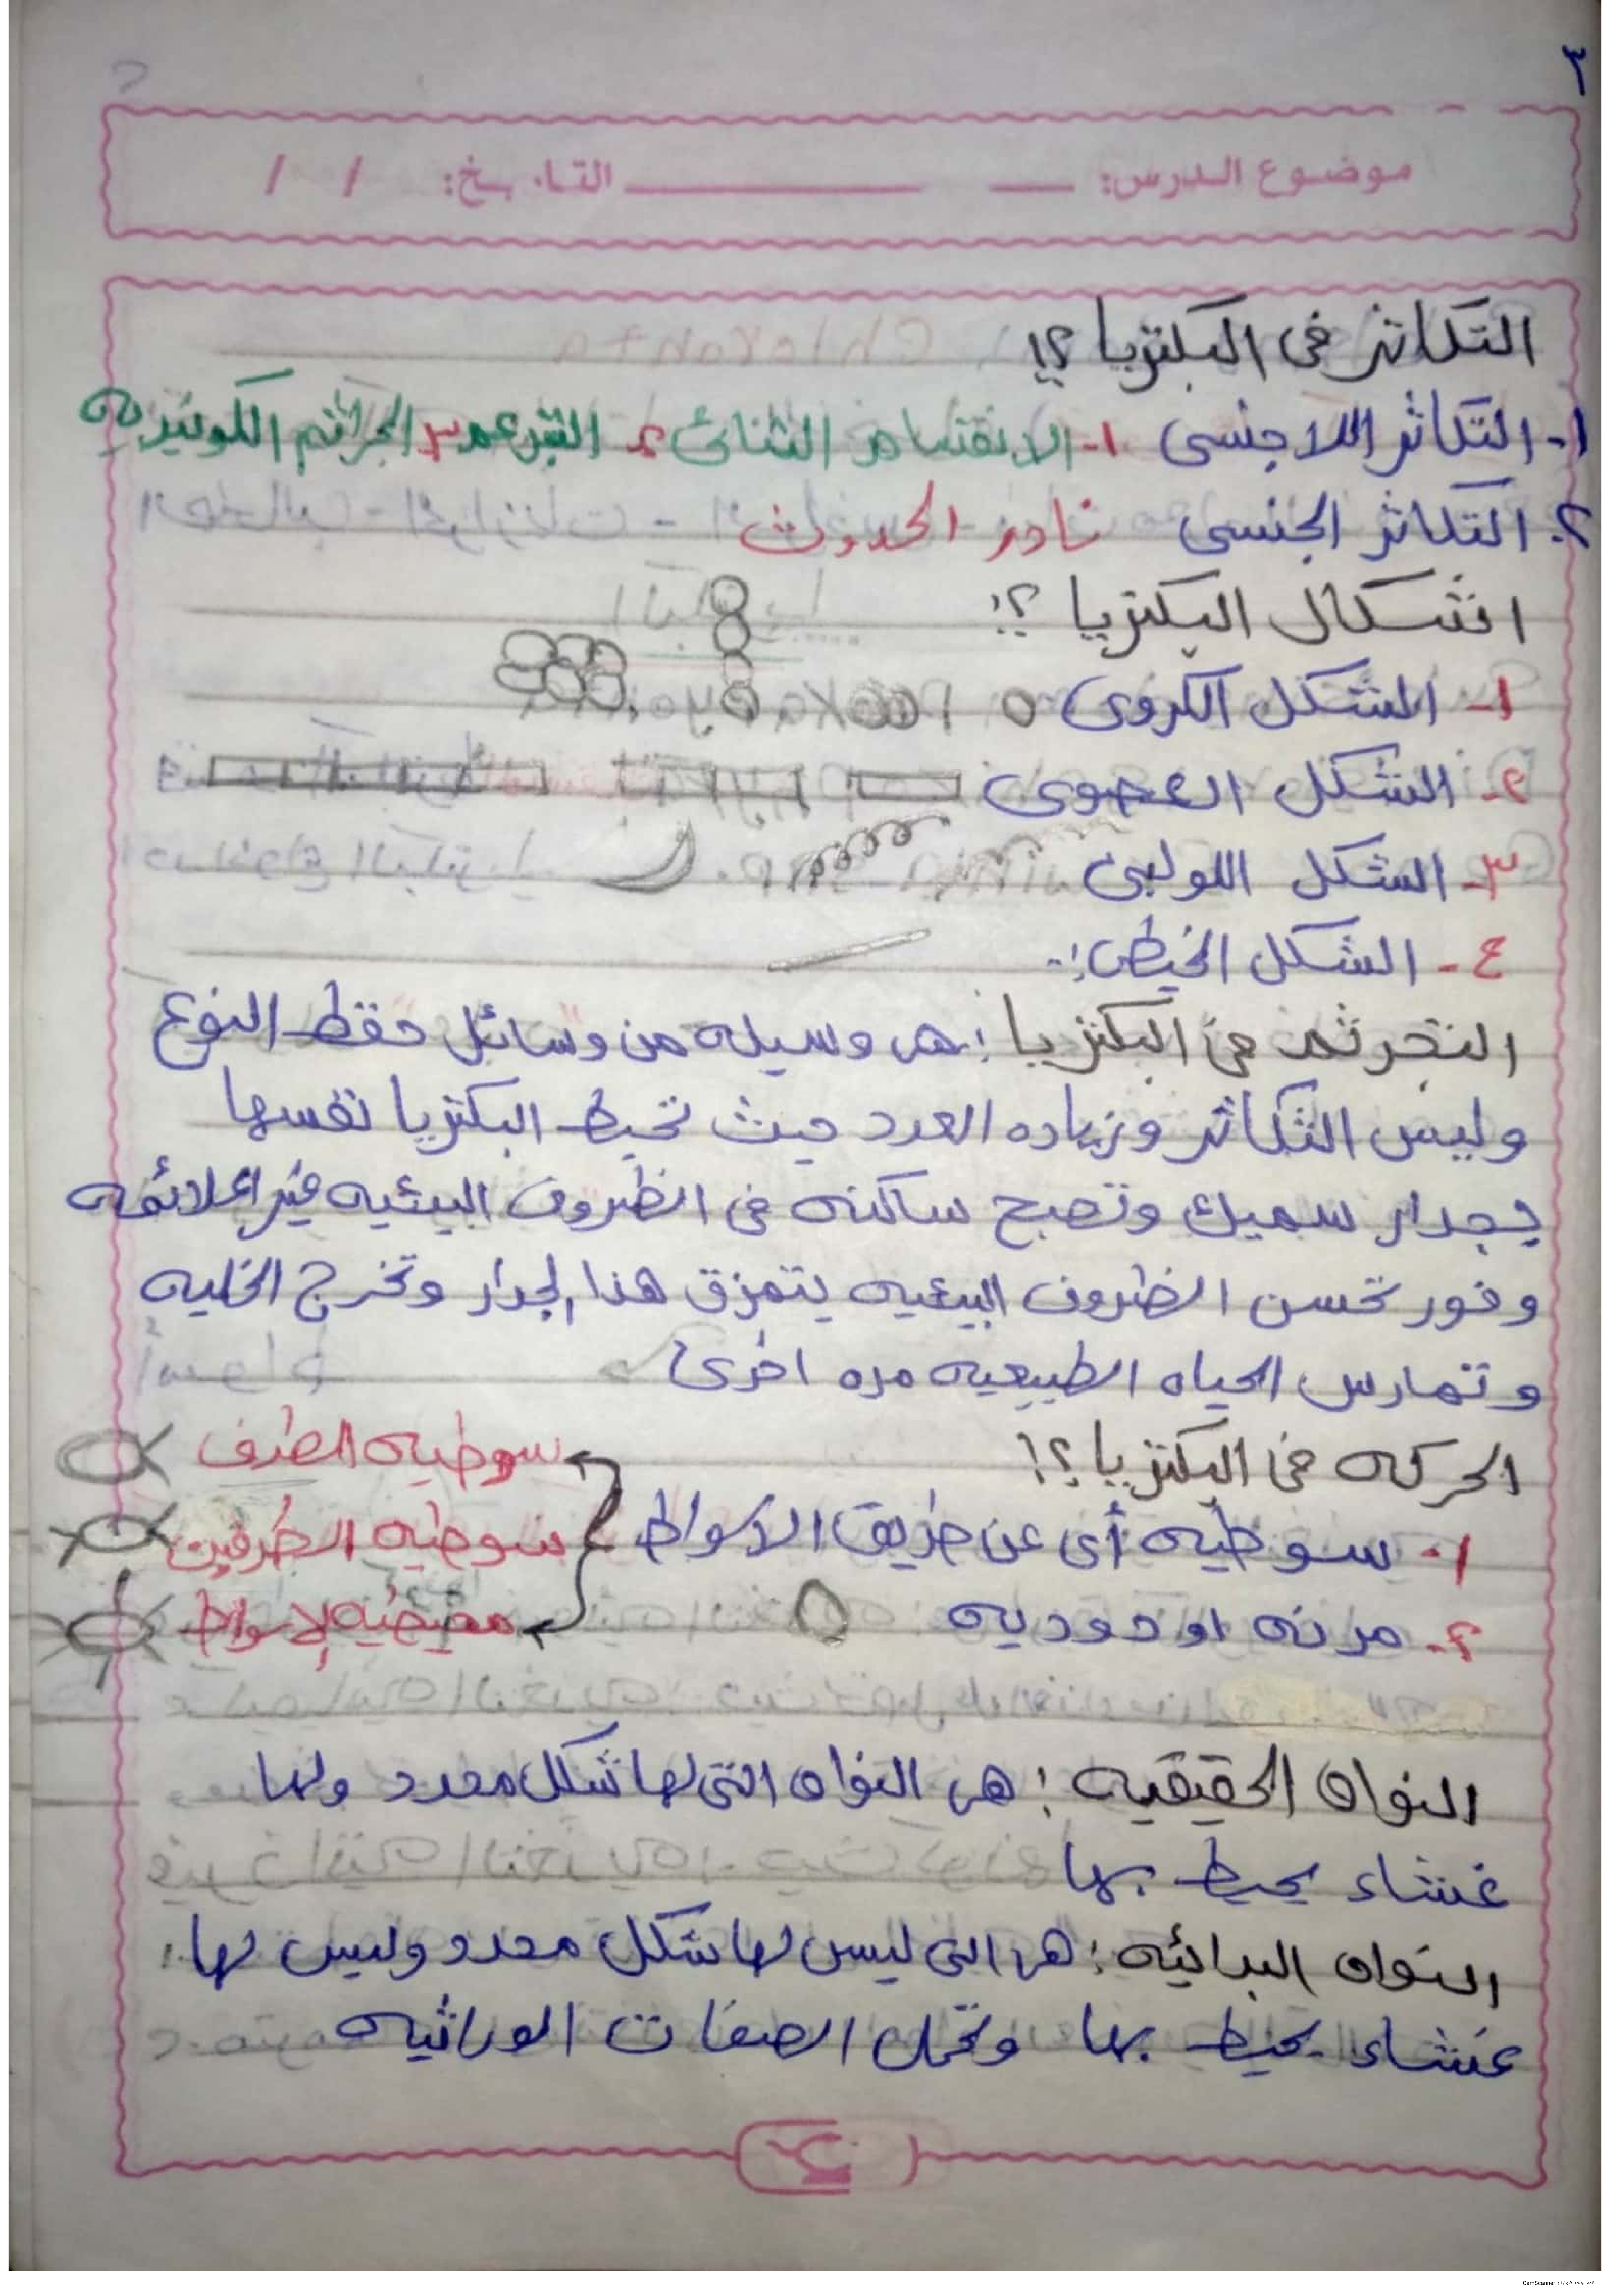 ٣
موضوع الدرس: التاريخ: / /
التكاثر فى البكتريا ؟!
١- التكاثر اللاجنسى ١- الانقسام الثنائى ٢- التبرعم ٣- الجراثيم الكونيديه
٢- التكاثر الجنسى نادر الحدوث
اشكال البكتريا ؟!
١- الشكل الكروى
٢- الشكل العصوى
٣- الشكل اللولبى
٤- الشكل الخيطى :-
التجرثم فى البكتريا : هى وسيله من وسائل حفظ النوع
وليس التكاثر وزياده العدد حيث تحيط البكتريا نفسها
بجدار سميك وتصبح ساكنه فى الظروف البيئيه غير الملائمه
وفور تحسن الظروف البيئيه يتمزق هذا الجدار وتخرج الخليه
وتمارس الحياه الطبيعيه مره اخرى
الحركه فى البكتريا ؟!
سوطيه الطرف
١- سوطيه أى عن طريق الاسواط سوطيه الطرفين
٢- مرنه او دوديه محيطيه الاسواط
النواه الحقيقيه : هى النواه التى لها شكل محدد ولها
غشاء يحيط بها
النواه البدائيه : هى التى ليس لها شكل محدد وليس لها
غشاء يحيط بها وتحمل الصفات الوراثيه
الممسوحة ضوئيا بـ CamScanner